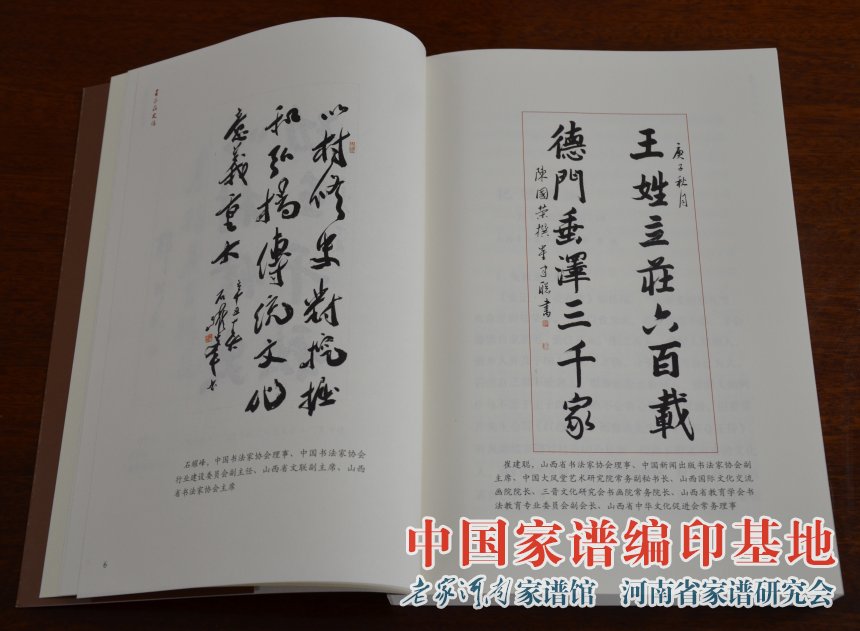 以村修史對挖掘
和弘揚傳統文化
意義重大
石耀峰，中国书法家协会理事、中国书法家协会
行业建设委员会副主任、山西省文联副主席、山西
省书法家协会主席
6
庚子秋月
王姓立莊六百載
德門垂澤三千家
陳國榮撰 崔建聰書
崔建聪，山西省书法家协会理事、中国新闻出版书法家协会副
主席、中国大风堂艺术研究院常务副秘书长、山西国际文化交流
画院院长、三晋文化研究会书画院常务院长、山西省教育学会书
法教育专业委员会副会长、山西省中华文化促进会常务理事
中国家谱编印基地
老家河南家谱馆 河南省家谱研究会